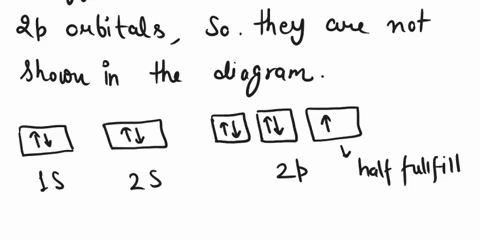 2p orbitals, So. they are not
shown in the diagram.
↑↓ ↑↓ ↑↓ ↑↓ ↑
1S 2S 2p half fullfill